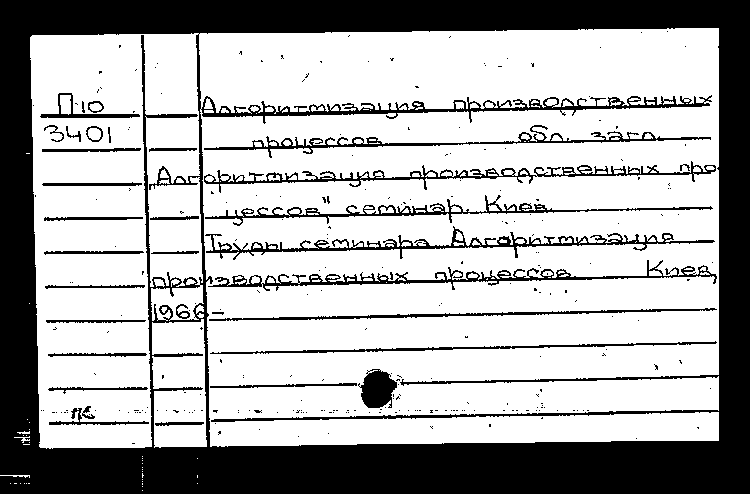 П10 Алгоритмизация производственных
3401 процессов обл. загл.
„Алгоритмизация производственных про
цессов", семинар. Киев.
Труды семинара Алгоритмизация
производственных процессов Киев,
1966-